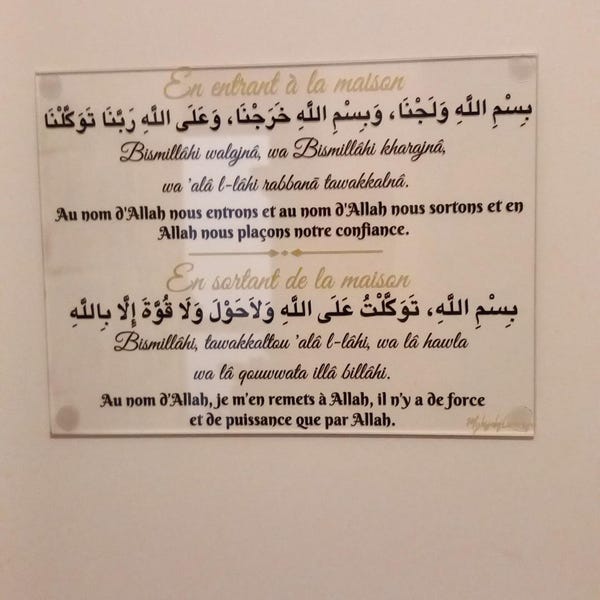 En entrant à la maison
بِسْمِ اللَّهِ وَلَجْنَا، وَبِسْمِ اللَّهِ خَرَجْنَا، وَعَلَى اللَّهِ رَبَّنَا تَوَكَّلْنَا
Bismillâhi walajnâ, wa Bismillâhi kharajnâ,
wa 'alâ l-lâhi rabbanā tawakkalnâ.
Au nom d'Allah nous entrons et au nom d'Allah nous sortons et en
Allah nous plaçons notre confiance.
En sortant de la maison
بِسْمِ اللَّهِ، تَوَكَّلْتُ عَلَى اللَّهِ وَلاَحَوْلَ وَلَا قُوَّةَ إِلَّا بِاللَّهِ
Bismillâhi, tawakkaltou 'alâ l-lâhi, wa lâ hawla
wa lâ qouwwata illâ billâhi.
Au nom d'Allah, je m'en remets à Allah, il n'y a de force
et de puissance que par Allah.